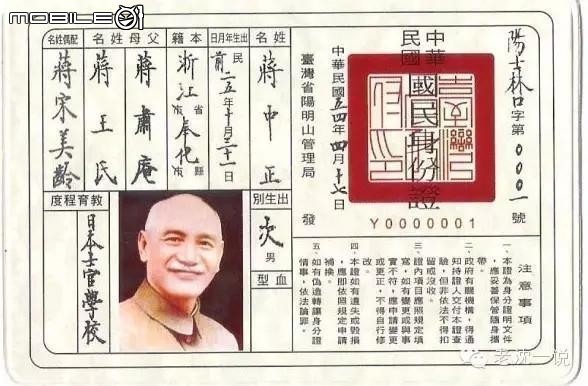 Mobile01
陽士林口字第0001號
中華民國
國民身份證
Y0000001
中華民國五四年四月十七日
臺灣省陽明山管理局 發
姓名
蔣中正
出生年月日
民前二五年十月三十一日
本籍
浙江省市奉化縣市
父母姓名
蔣肅庵
蔣王氏
配偶姓名
蔣宋美齡
出生別
男
血型
教育程度
日本士官學校
注意事項
一、本證為身分證明文件
，應妥善保管隨身攜
帶。
二、政府有關機構，得通
知持證人交付本證查
驗，但非依法不得扣
留或沒收。
三、證內項目應照規定填
寫，如有變更或與事
實不符，應申請變更
或更正，不得自行修
改。
四、本證如有遺失或毀損
，應即依照規定申請
補換。
五、如有偽造轉讓身分證
情事，依法論罪。
老沈一说